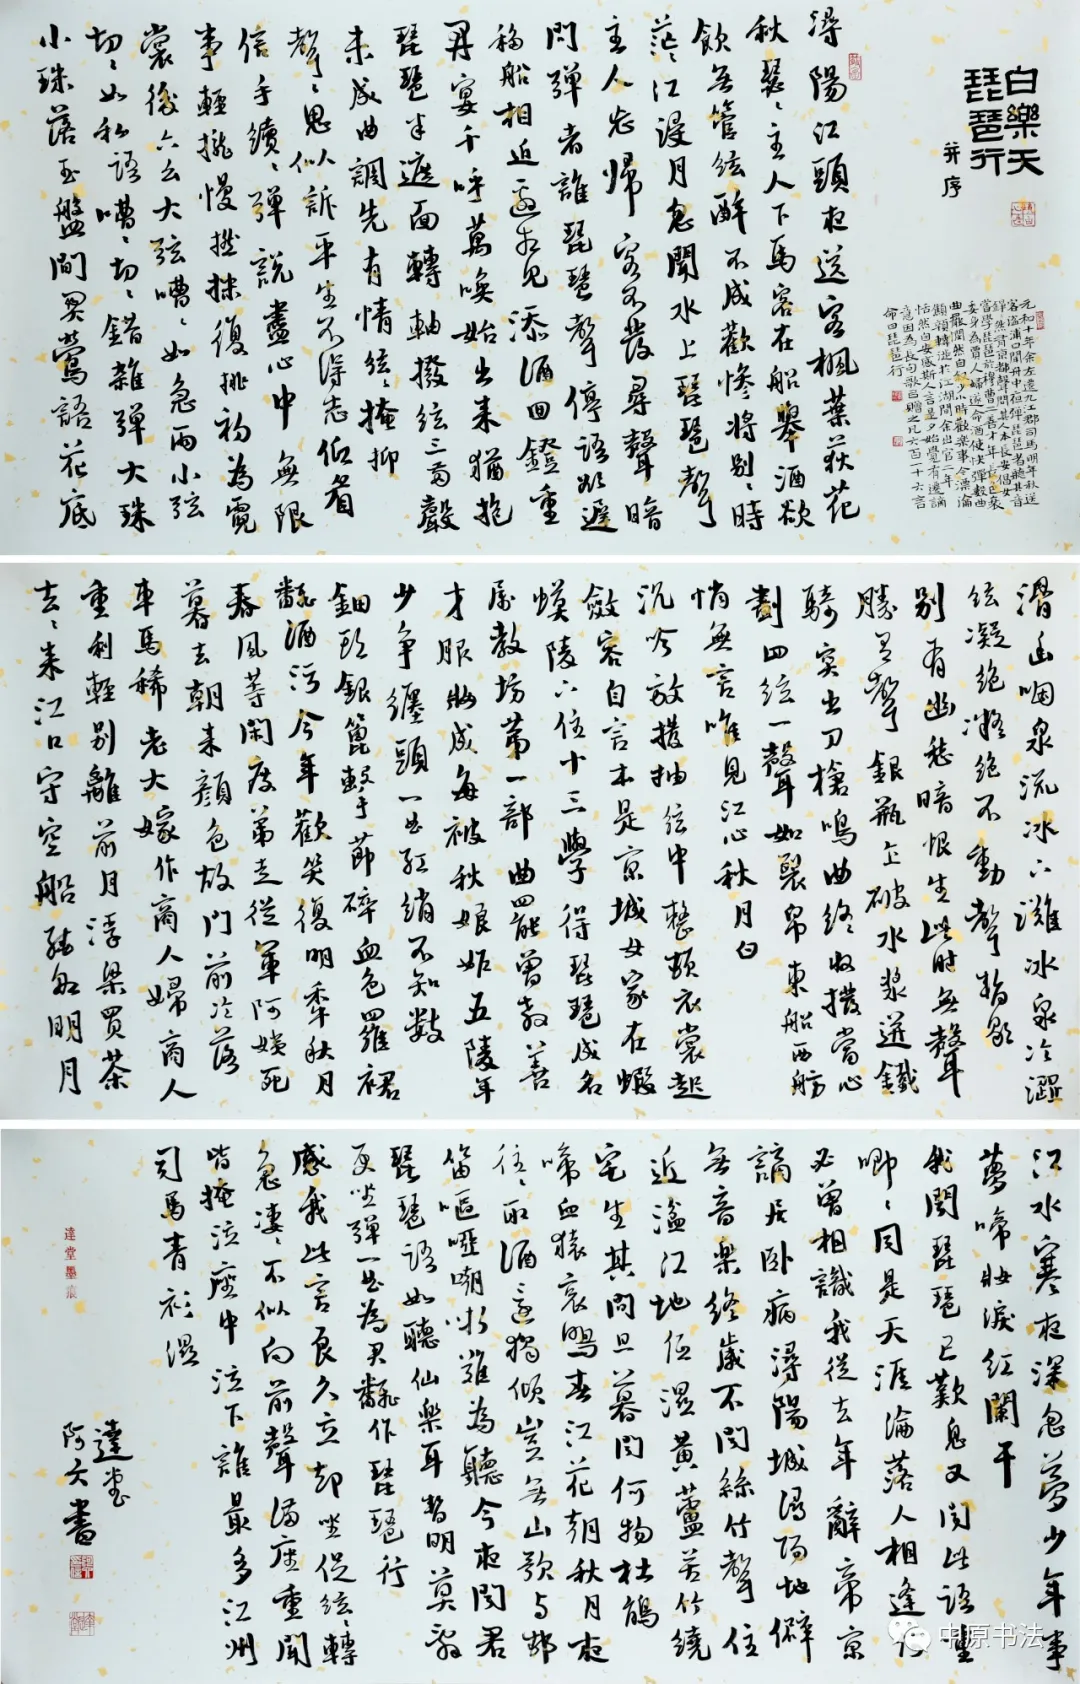 白樂天
琵琶行
并序
元和十年余左遷九江郡司馬明年秋送
客湓浦口聞舟中夜彈琵琶者聽其音
錚錚然有京都聲問其人本長安倡女
嘗學琵琶於穆曹二善才年長色衰
委身為賈人婦遂命酒使快彈數曲
曲罷憫然自敘少小時歡樂事今漂淪
顦顇轉徙於江湖間余出官二年
恬然自安感斯人言是夕始覺有遷謫
意因為長句歌以贈之凡六百一十六言
命曰琵琶行
潯陽江頭夜送客楓葉荻花
秋瑟々主人下馬客在船舉酒欲
飲無管絃醉不成歡慘將別々時
茫々江浸月忽聞水上琵琶聲
主人忘歸客不發尋聲暗
問彈者誰琵琶聲停語欲遲
移船相近邀相見添酒回鐙重
開宴千呼萬喚始出來猶抱
琵琶半遮面轉軸撥絃三兩聲
未成曲調先有情絃々掩抑
聲々思似訴平生不得志低眉
信手續々彈說盡心中無限
事輕攏慢撚抹復挑初為霓
裳後六么大弦嘈々如急雨小弦
切々如私語嘈々切々錯雜彈大珠
小珠落玉盤間關鶯語花底
滑幽咽泉流冰下灘冰泉冷澀
絃凝絕凝絕不動聲暫歇
別有幽愁暗恨生此時無聲
勝有聲銀瓶乍破水漿迸鐵
騎突出刀槍鳴曲終收撥當心
劃四絃一聲如裂帛東船西舫
悄無言唯見江心秋月白
沉吟放撥抽絃中整頓衣裳起
斂容自言本是京城女家在蝦
蟆陵下住十三學得琵琶成名
屬教坊第一部曲罷曾教善
才服妝成每被秋娘妬五陵年
少爭纏頭一曲紅綃不知數
鈿頭銀篦擊節碎血色羅裙
翻酒污今年歡笑復明年秋月
春風等閑度弟走從軍阿姨死
暮去朝來顏色故門前冷落
車馬稀老大嫁作商人婦商人
重利輕別離前月浮梁買茶
去々來江口守空船繞船明月
江水寒夜深忽夢少年事
夢啼妝淚紅闌干
我聞琵琶已歎息又聞此語重
唧々同是天涯淪落人相逢何
必曾相識我從去年辭帝京
謫居卧病潯陽城潯陽地僻
無音樂終歲不聞絲竹聲住
近湓江地低濕黃蘆苦竹繞
宅生其間旦暮聞何物杜鵑
啼血猿哀鳴春江花朝秋月夜
往々取酒還獨傾豈無山歌與邨
笛嘔啞嘲哳難為聽今夜聞君
琵琶語如聽仙樂耳暫明莫辭
更坐彈一曲為君翻作琵琶行
感我此言良久立却坐促絃轉
急淒々不似向前聲滿座重聞
皆掩泣座中泣下誰最多江州
司馬青衫濕
達堂
阿文書
達堂墨痕
中原书法